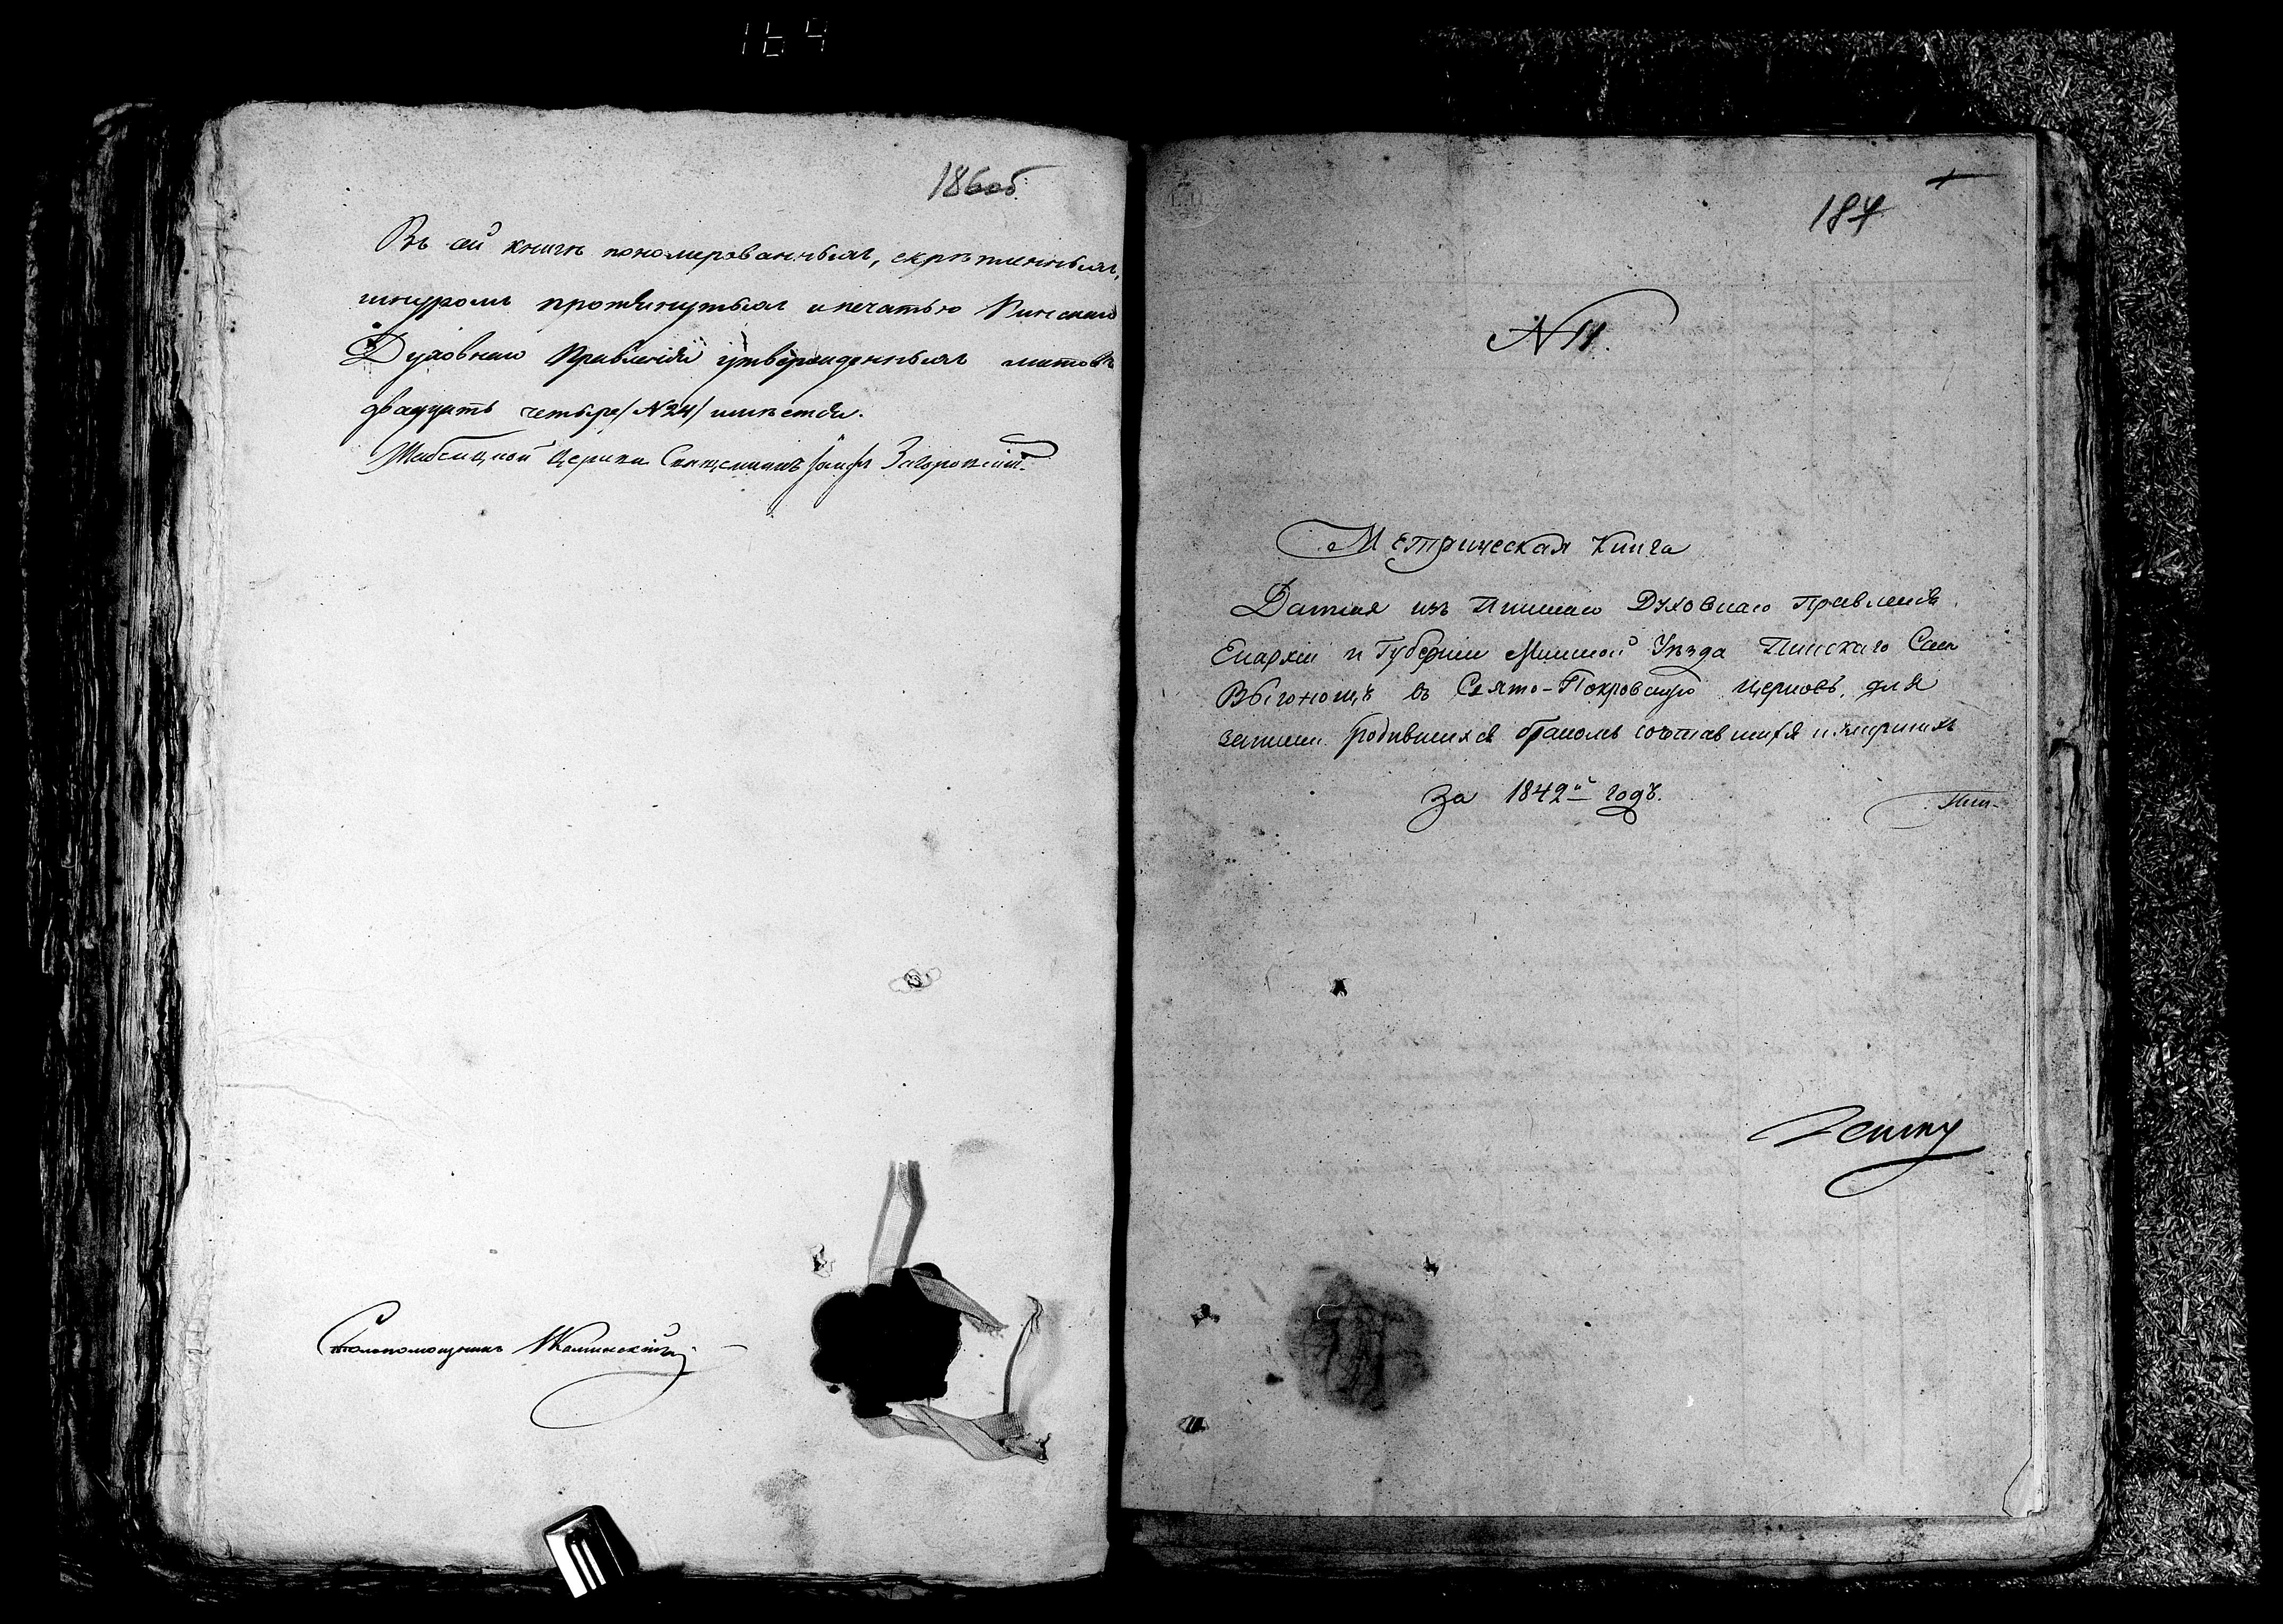 164
186об.
Въ сей книгѣ пономерованныхъ, скрѣпленныхъ,
шнуромъ протянутыхъ и печатью Пинскаго
Духовнаго Правленія утвержденныхъ листовъ
двадцать четыре /№ 24/ имѣется.
Церкви Священникъ Іосифъ Загоровскій
Столопомощникъ
187
N 11.
Метрическая Книга
Данная изъ Пинскаго Духовнаго Правленія
Епархіи и Губерніи Минской Уѣзда Пинскаго Села
Выгонощъ въ Свято-Покровскую Церковь, для
записи родившихся бракомъ сочетавшихся и умершихъ
За 1842й годъ.
Пин-